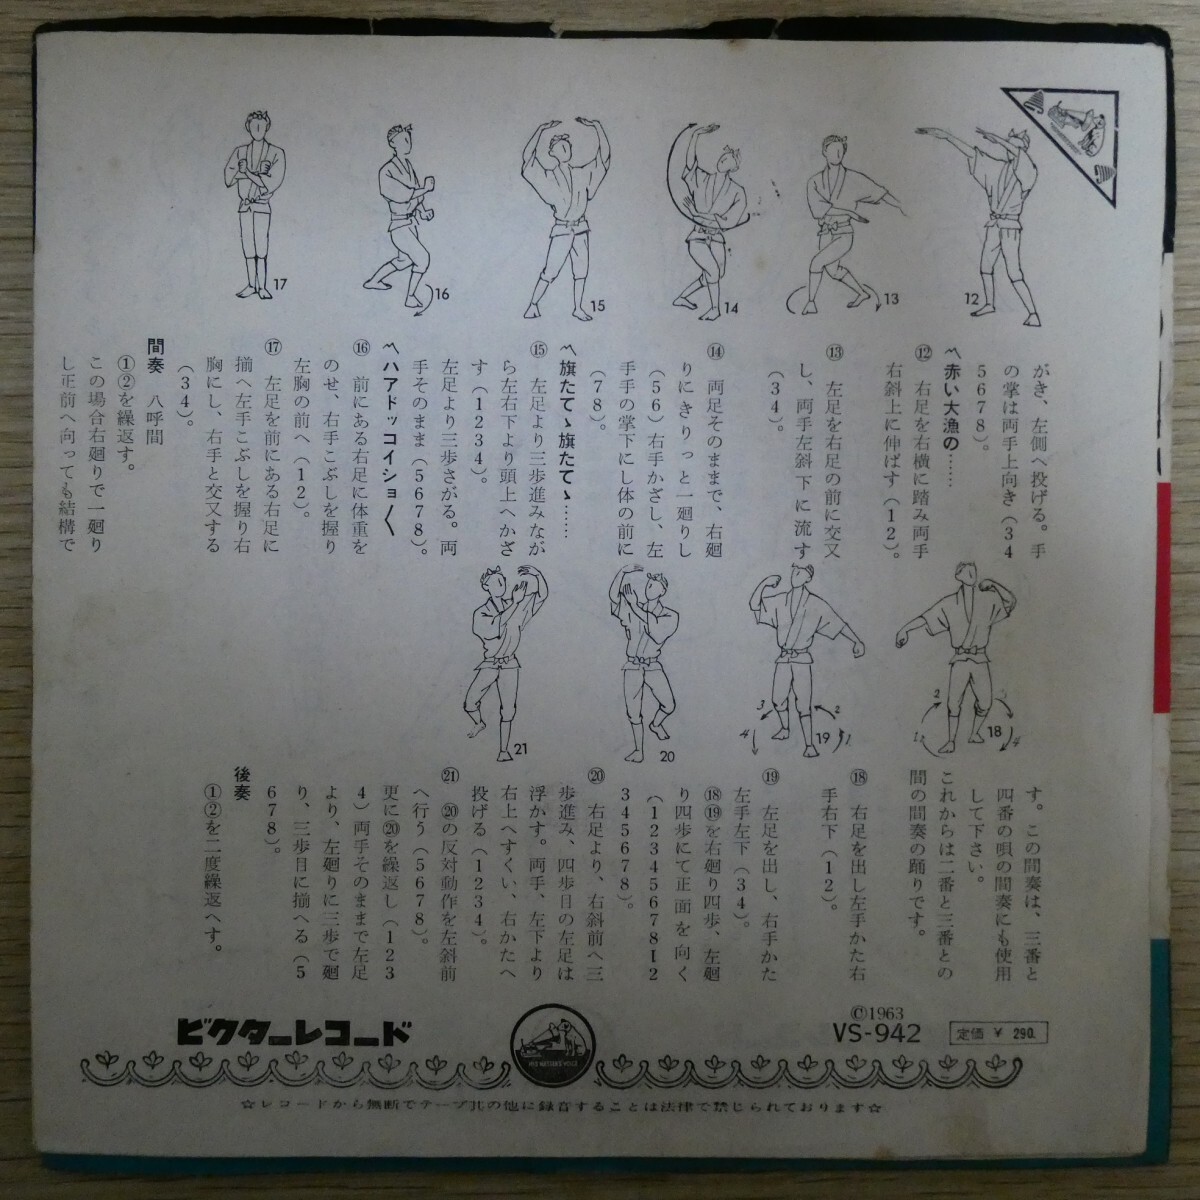 がき、左側へ投げる。手
の掌は両手上向き(34
5678)。
〽赤い大漁の……
⑫ 右足を右横に踏み両手
右斜上に伸ばす(12)。
⑬ 左足を右足の前に交叉
し、両手左斜下に流す
(34)。
⑭ 両足そのままで、右廻
りにきりっと一廻りし
(56)右手かざし、左
手手の掌下にし体の前に
(78)。
〽旗たてゝ旗たてゝ……
⑮ 左足より三歩進みなが
ら左右下より頭上へかざ
す(1234)。
左足より三歩さがる。両
手そのまま(5678)。
〽ハアドッコイショ〱
⑯ 前にある右足に体重を
のせ、右手こぶしを握り
左胸の前へ(12)。
⑰ 左足を前にある右足に
揃へ左手こぶしを握り右
胸にし、右手と交叉する
(34)。
間奏 八呼間
①②を繰返す。
この場合右廻りで一廻り
し正前へ向っても結構で
す。この間奏は、三番と
四番の唄の間奏にも使用
して下さい。
これからは二番と三番との
間の間奏の踊りです。
⑱ 右足を出し左手かた右
手右下(12)。
⑲ 左足を出し、右手かた
左手左下(34)。
⑱⑲を右廻り四歩、左廻
り四歩にて正面を向く
(1234567812
345678)。
⑳ 右足より、右斜前へ三
歩進み、四歩目の左足は
浮かす。両手、左下より
右上へすくい、右かたへ
投げる(1234)。
㉑ ⑳の反対動作を左斜前
へ行う(5678)。
更に⑳を繰返し(123
4)両手そのままで左足
より、左廻りに三歩で廻
り、三歩目に揃へる(5
678)。
後奏
①②を二度繰返へす。
12
13
14
15
16
17
18
19
20
21
1
2
3
4
1
2
3
4
Ⓒ1963
VS-942
定価 ¥ 290.
ビクターレコード
HIS MASTER'S VOICE
☆レコードから無断でテープ其の他に録音することは法律で禁じられております☆